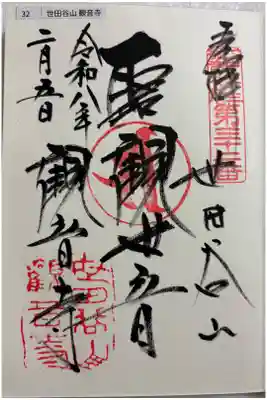 32 世田谷山 観音寺
奉拝
第三十二番
世田谷山
聖観世音
観音寺
令和八年
二月五日